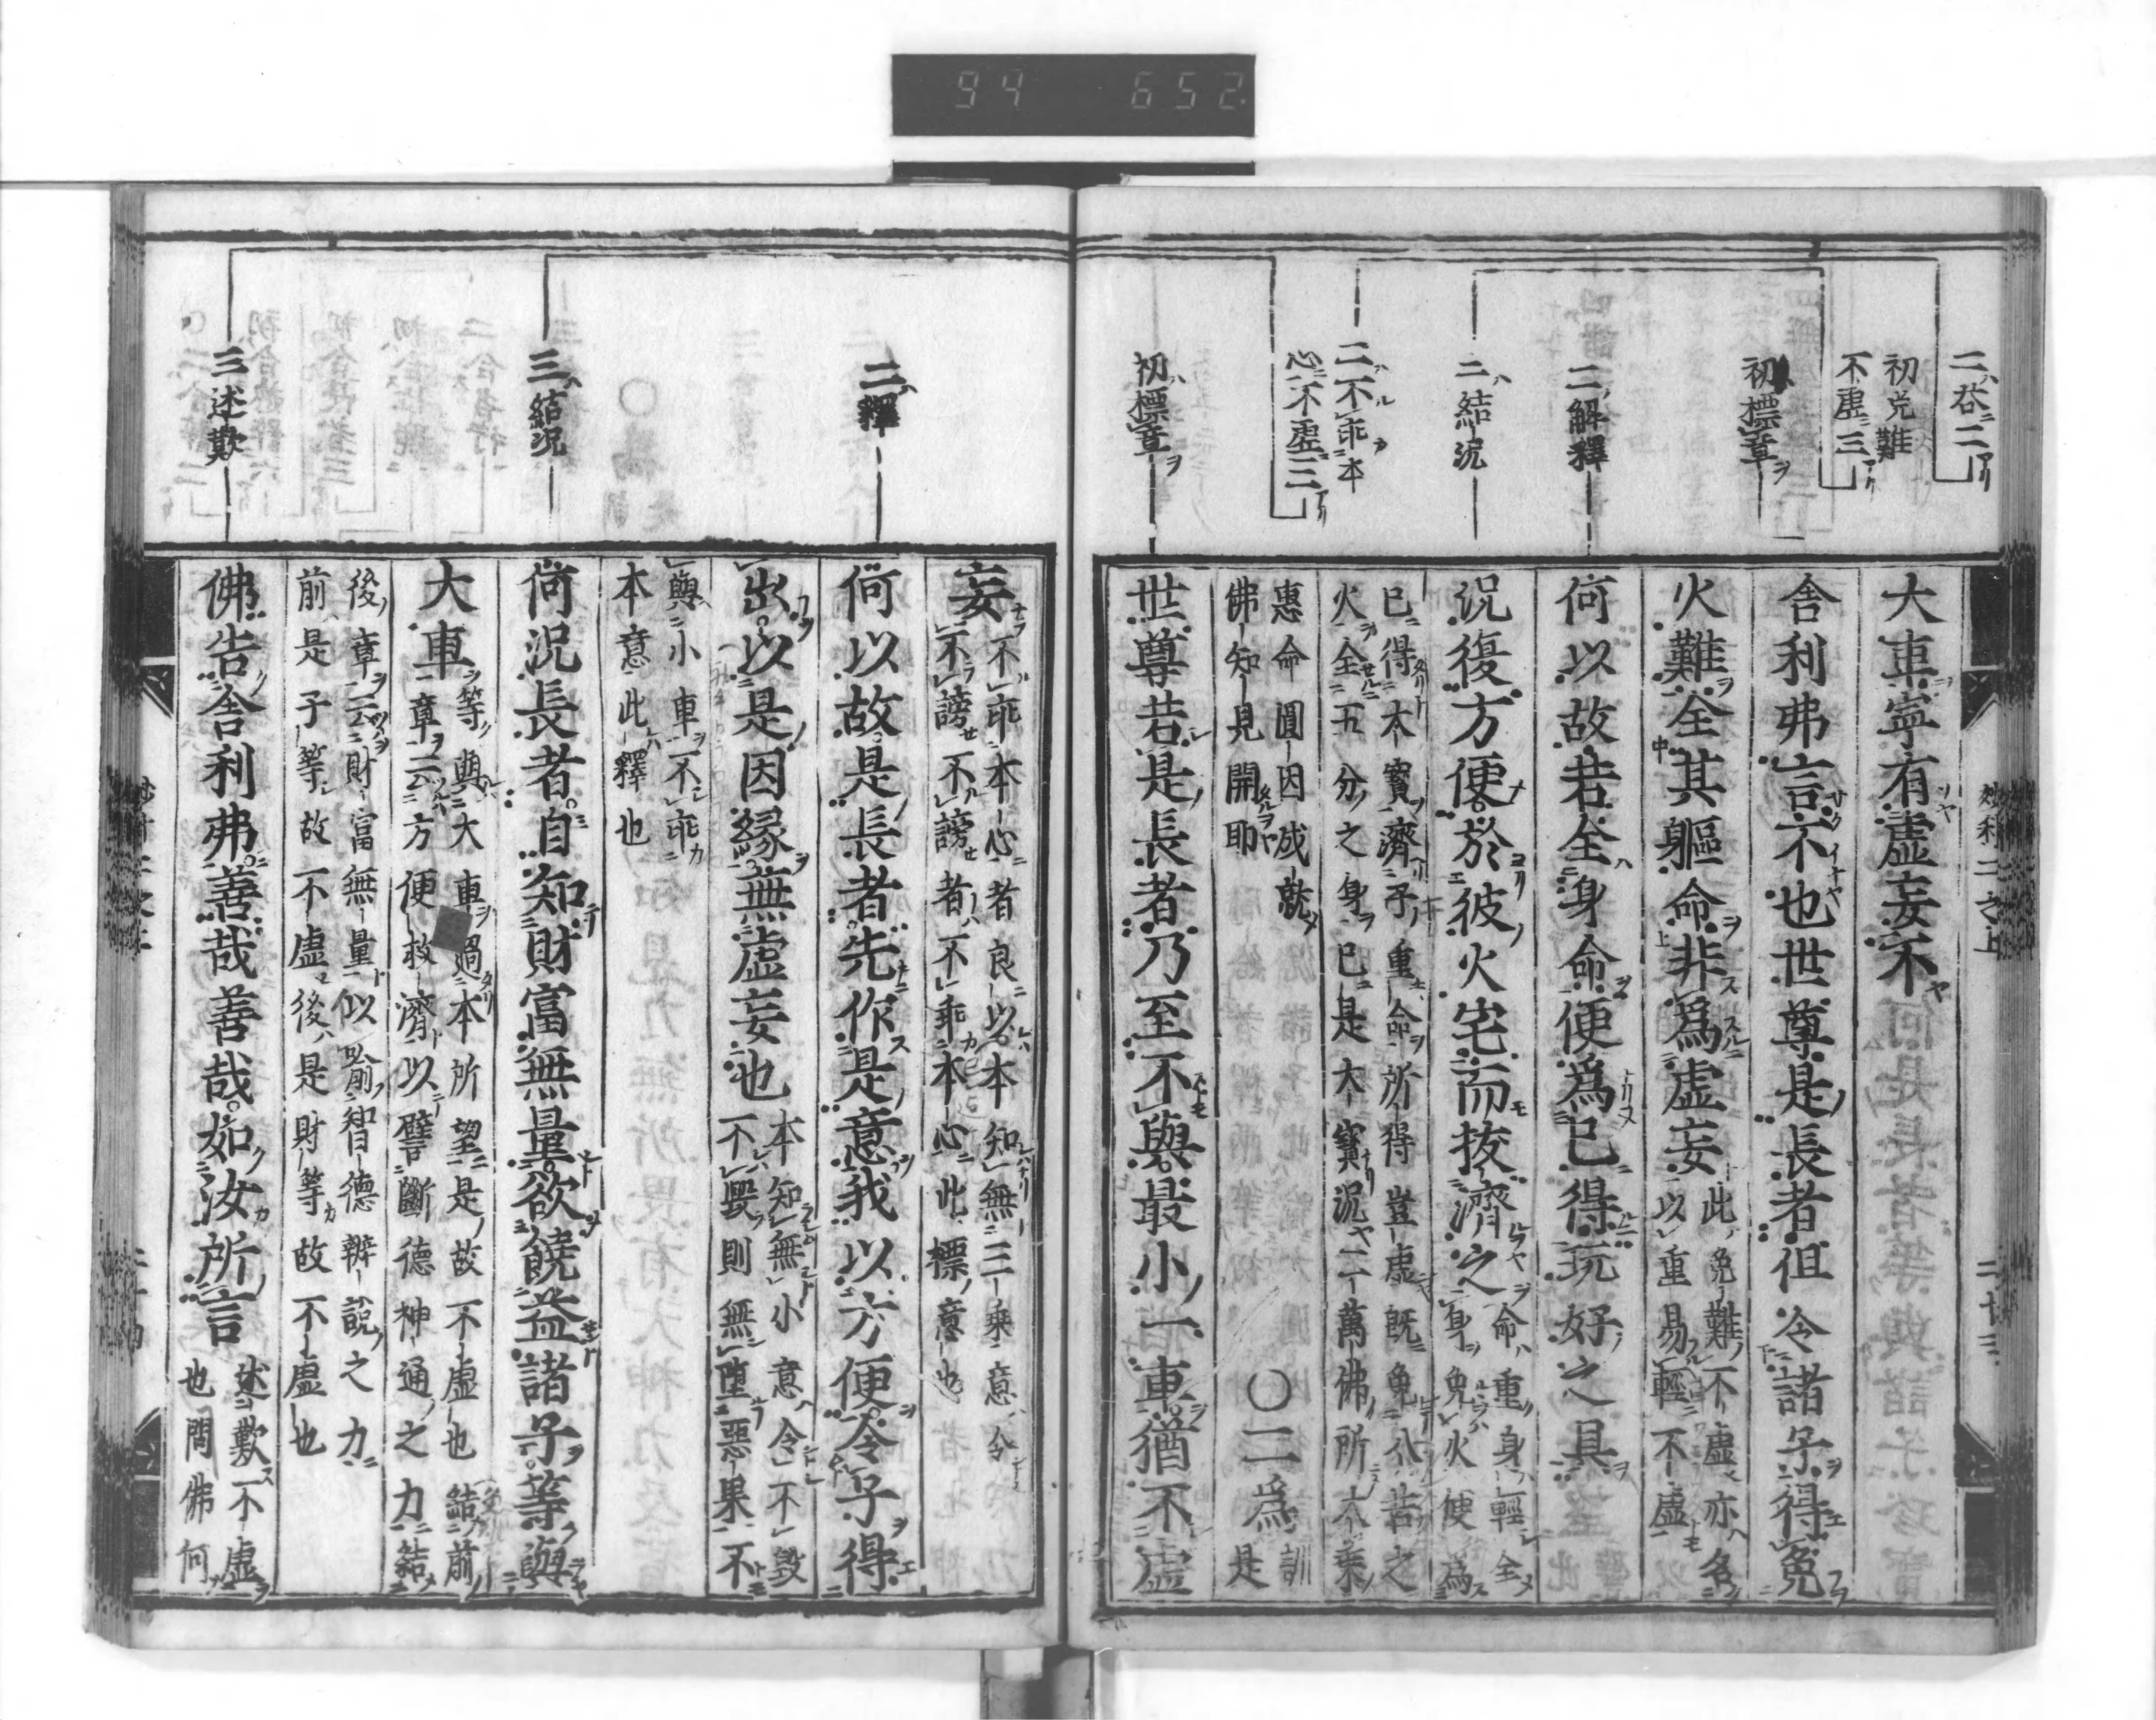 94 652
二答二
初免難
不虛三
初標章
二解釋
二結況
二不乖本
心不虛三
初標章
大車寧有虛妄不
舍利弗言不也世尊是長者但令諸子得免
火難全其軀命非爲虛妄
此免難不虛亦名
以重易輕不虛
何以故若全身命便爲已得玩好之具
況復方便於彼火宅而拔濟之
命重身輕全
身免火便爲
已得大寶濟子重命所得豈虛既免八苦之
火全五分之身已是大寶況二萬佛所大乘
惠命圓因成就
佛知見開耶
○二爲
訓
是
世尊若是長者乃至不與最小一車猶不虛
二釋
三結況
三述歎
妄
不乖本心者良以本知無三乘意令
不謗不謗者不乖本心此標意也
何以故是長者先作是意我以方便令子得
出以是因緣無虛妄也
本知無小意令不毀
不毀則無墮惡果不
與小車不乖
本意此釋也
何況長者自知財富無量欲饒益諸子等與
大車
等與大車過本所望是故不虛也結前
章云方便救濟以譬斷德神通之力結
後章云財富無量似喻智德辨說之力
前是子等故不虛後是財等故不虛也
佛告舍利弗善哉善哉如汝所言
述歎不虛
也問佛何